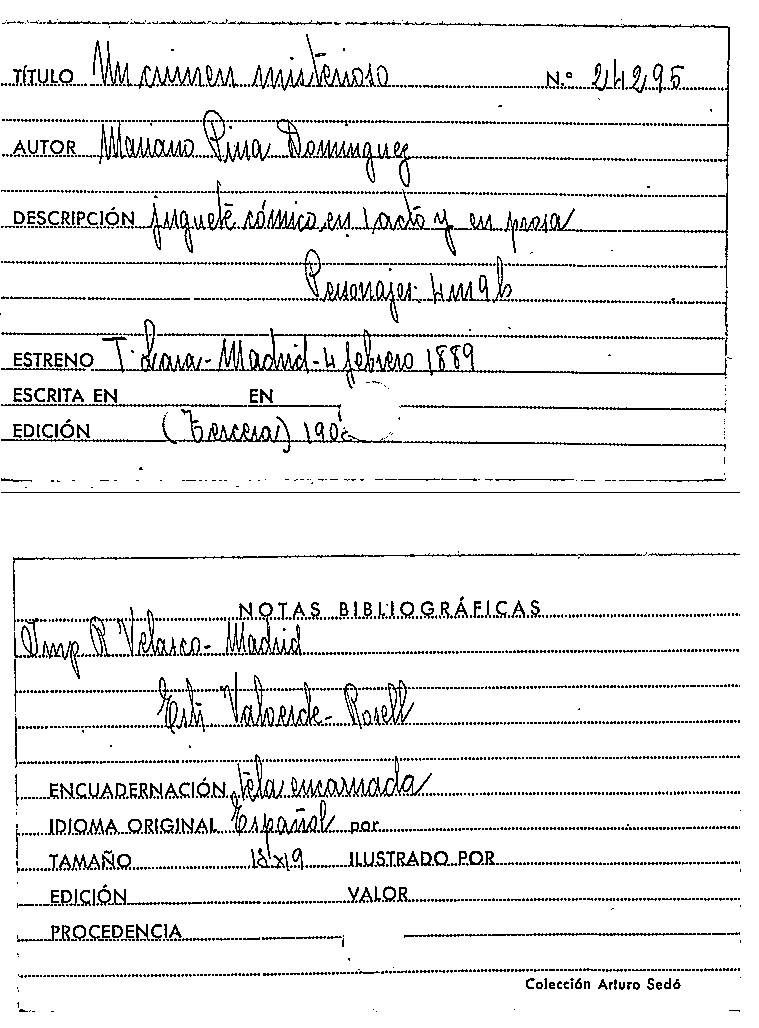 TÍTULO Un crimen misterioso N.º 24295
AUTOR Mariano Pina Dominguez
DESCRIPCIÓN juguete cómico en 1 acto y en prosa
Personajes 4 m 9 h
ESTRENO T. Lara - Madrid - 4 febrero 1889
ESCRITA EN EN
EDICIÓN (Tercera)
NOTAS BIBLIOGRÁFICAS
Imp R Velasco - Madrid
Valverde - Rosell
ENCUADERNACIÓN tela encarnada
IDIOMA ORIGINAL Español por
TAMAÑO ILUSTRADO POR
EDICIÓN VALOR
PROCEDENCIA
Colección Arturo Sedó